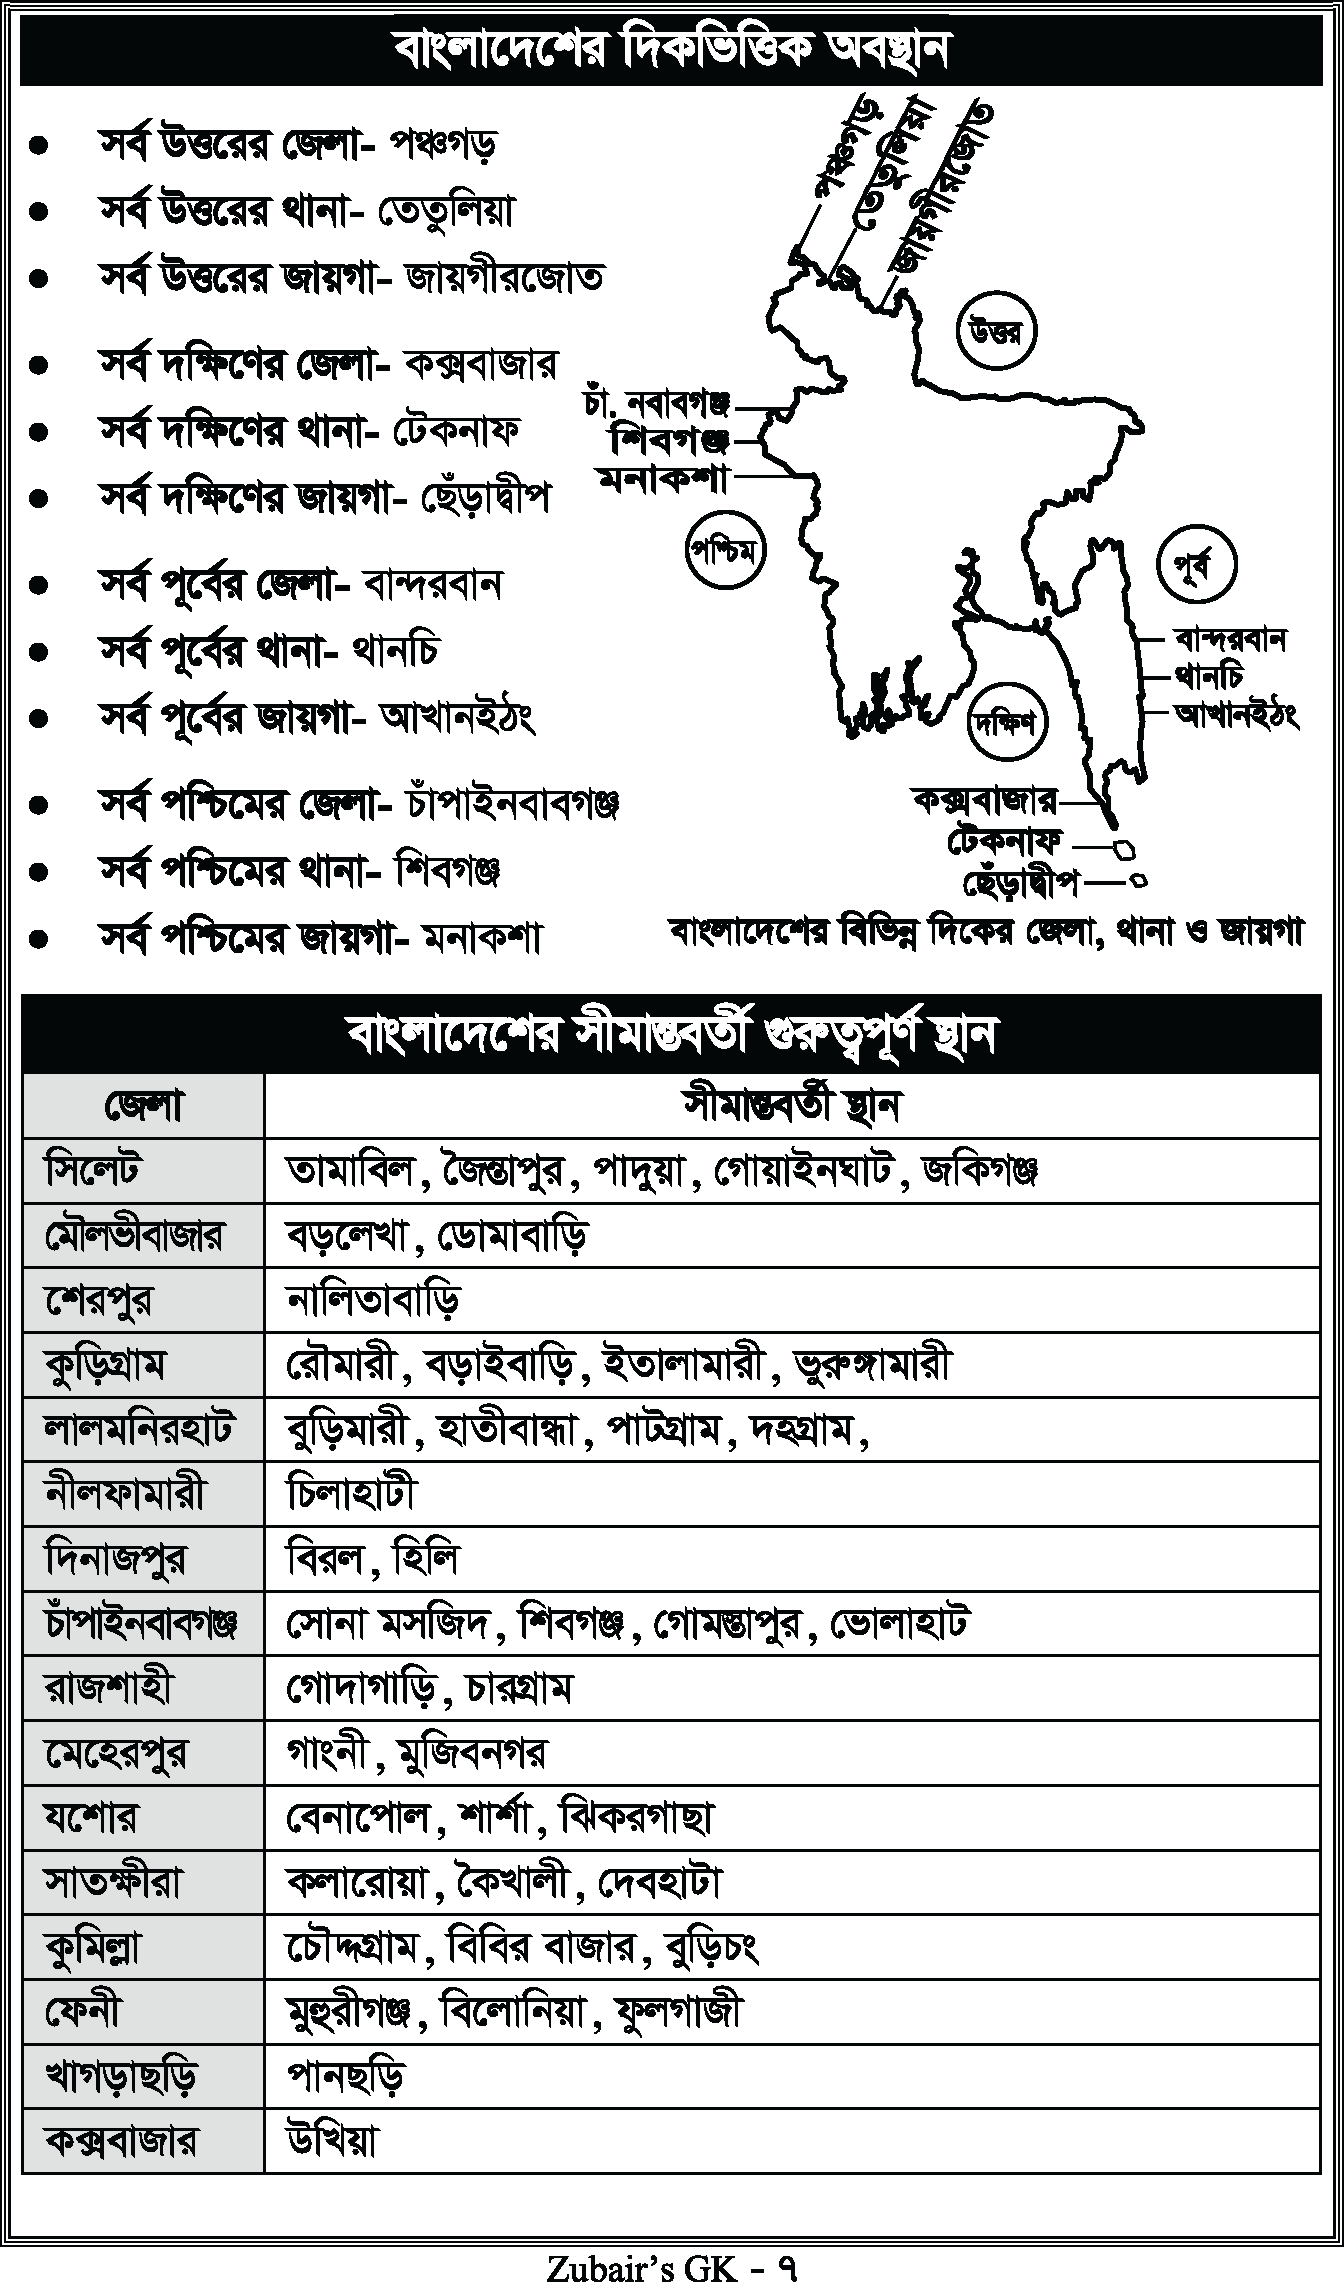 বাংলাদেশের দিকভিত্তিক অবস্থান
● সর্ব উত্তরের জেলা- পঞ্চগড়
● সর্ব উত্তরের থানা- তেতুলিয়া
● সর্ব উত্তরের জায়গা- জায়গীরজোত
● সর্ব দক্ষিণের জেলা- কক্সবাজার
● সর্ব দক্ষিণের থানা- টেকনাফ
● সর্ব দক্ষিণের জায়গা- ছেঁড়াদ্বীপ
● সর্ব পূর্বের জেলা- বান্দরবান
● সর্ব পূর্বের থানা- থানচি
● সর্ব পূর্বের জায়গা- আখানইঠং
● সর্ব পশ্চিমের জেলা- চাঁপাইনবাবগঞ্জ
● সর্ব পশ্চিমের থানা- শিবগঞ্জ
● সর্ব পশ্চিমের জায়গা- মনাকশা
পঞ্চগড়
তেতুলিয়া
জায়গীরজোত
উত্তর
চাঁ. নবাবগঞ্জ
শিবগঞ্জ
মনাকশা
পশ্চিম
পূর্ব
বান্দরবান
থানচি
আখানইঠং
দক্ষিণ
কক্সবাজার
টেকনাফ
ছেঁড়াদ্বীপ
বাংলাদেশের বিভিন্ন দিকের জেলা, থানা ও জায়গা
বাংলাদেশের সীমান্তবর্তী গুরুত্বপূর্ণ স্থান
জেলা সীমান্তবর্তী স্থান
সিলেট তামাবিল, জৈন্তাপুর, পাদুয়া, গোয়াইনঘাট, জকিগঞ্জ
মৌলভীবাজার বড়লেখা, ডোমাবাড়ি
শেরপুর নালিতাবাড়ি
কুড়িগ্রাম রৌমারী, বড়াইবাড়ি, ইতালামারী, ভুরুঙ্গামারী
লালমনিরহাট বুড়িমারী, হাতীবান্ধা, পাটগ্রাম, দহগ্রাম,
নীলফামারী চিলাহাটী
দিনাজপুর বিরল, হিলি
চাঁপাইনবাবগঞ্জ সোনা মসজিদ, শিবগঞ্জ, গোমস্তাপুর, ভোলাহাট
রাজশাহী গোদাগাড়ি, চারগ্রাম
মেহেরপুর গাংনী, মুজিবনগর
যশোর বেনাপোল, শার্শা, ঝিকরগাছা
সাতক্ষীরা কলারোয়া, কৈখালী, দেবহাটা
কুমিল্লা চৌদ্দগ্রাম, বিবির বাজার, বুড়িচং
ফেনী মুহুরীগঞ্জ, বিলোনিয়া, ফুলগাজী
খাগড়াছড়ি পানছড়ি
কক্সবাজার উখিয়া
Zubair’s GK - ৭